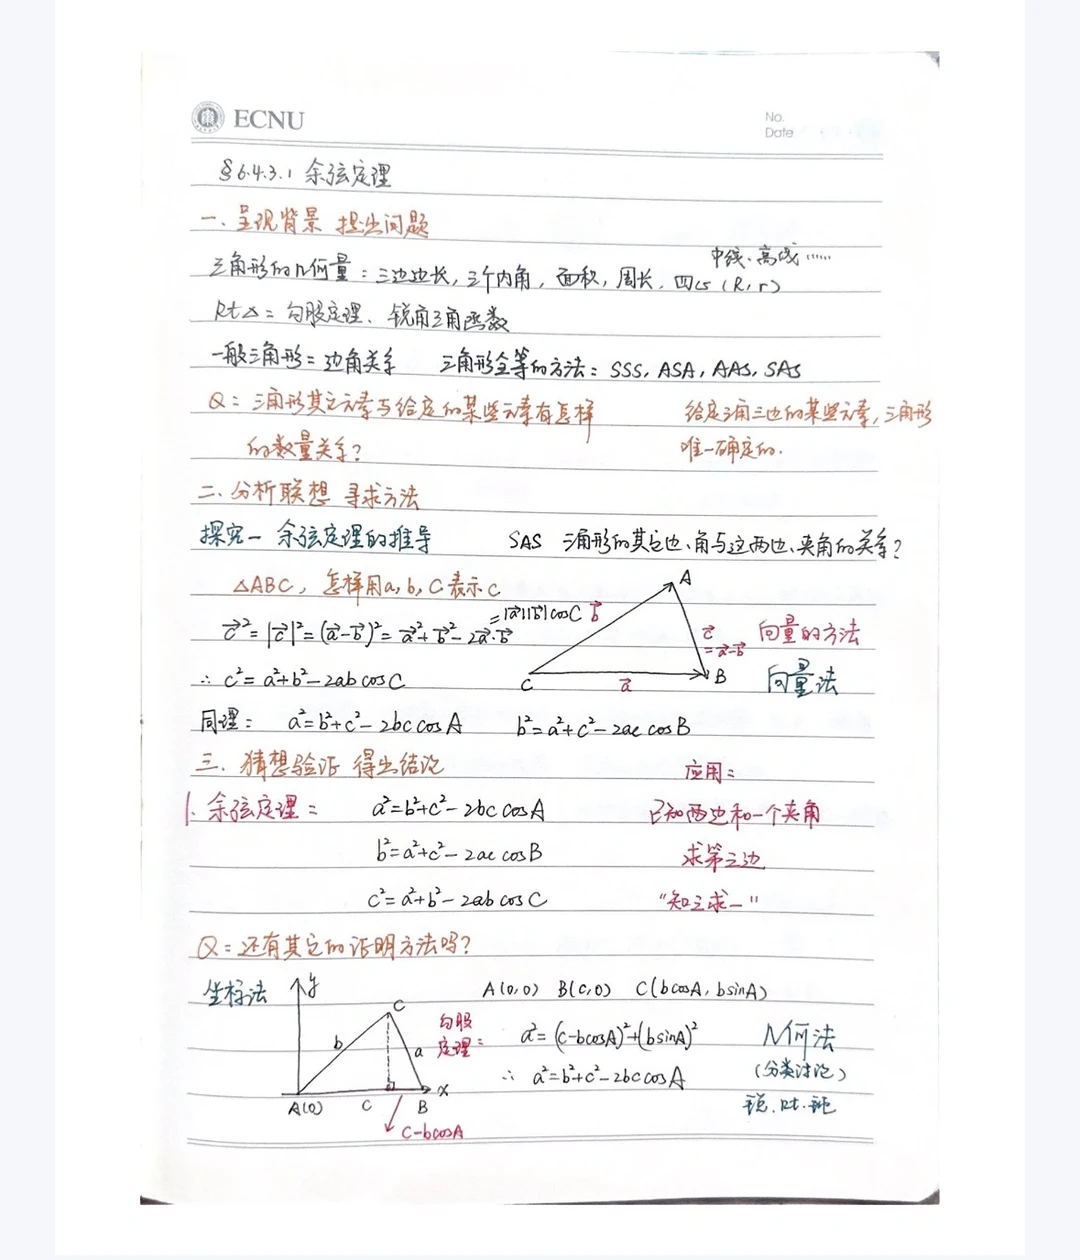 ECNU
No.
Date
§6.4.3.1 余弦定理
一、呈现背景 提出问题
中线、高线……
三角形的几何量：三边边长，三个内角，面积，周长，四心（R, r）
Rt△：勾股定理、锐角三角函数
一般三角形：边角关系 三角形全等的方法：SSS, ASA, AAS, SAS
Q：三角形其它元素与给定的某些元素有怎样 给定三角三边的某些元素，三角形
的数量关系？ 唯一确定的.
二、分析联想 寻求方法
探究一 余弦定理的推导 SAS 三角形的其它边、角与这两边、夹角的关系？
△ABC，怎样用a, b, C表示c
A
=|a⃗||b⃗|cosC b⃗
c⃗²=|c⃗|²=(a⃗-b⃗)²=a⃗²+b⃗²-2a⃗·b⃗ c⃗=a⃗-b⃗ 向量的方法
∴ c²=a²+b²-2abcosC C a⃗ B 向量法
同理： a²=b²+c²-2bccosA b²=a²+c²-2accosB
三、猜想验证 得出结论
应用：
1. 余弦定理： a²=b²+c²-2bccosA 已知两边和一个夹角
b²=a²+c²-2accosB 求第三边
c²=a²+b²-2abcosC “知三求一”
Q：还有其它的证明方法吗？
坐标法 y A(0,0) B(c,0) C(bcosA, bsinA)
C
b a 勾股定理： a²=(c-bcosA)²+(bsinA)² 几何法
∴ a²=b²+c²-2bccosA （分类讨论）
x
A(O) c B 锐、Rt、钝
c-bcosA